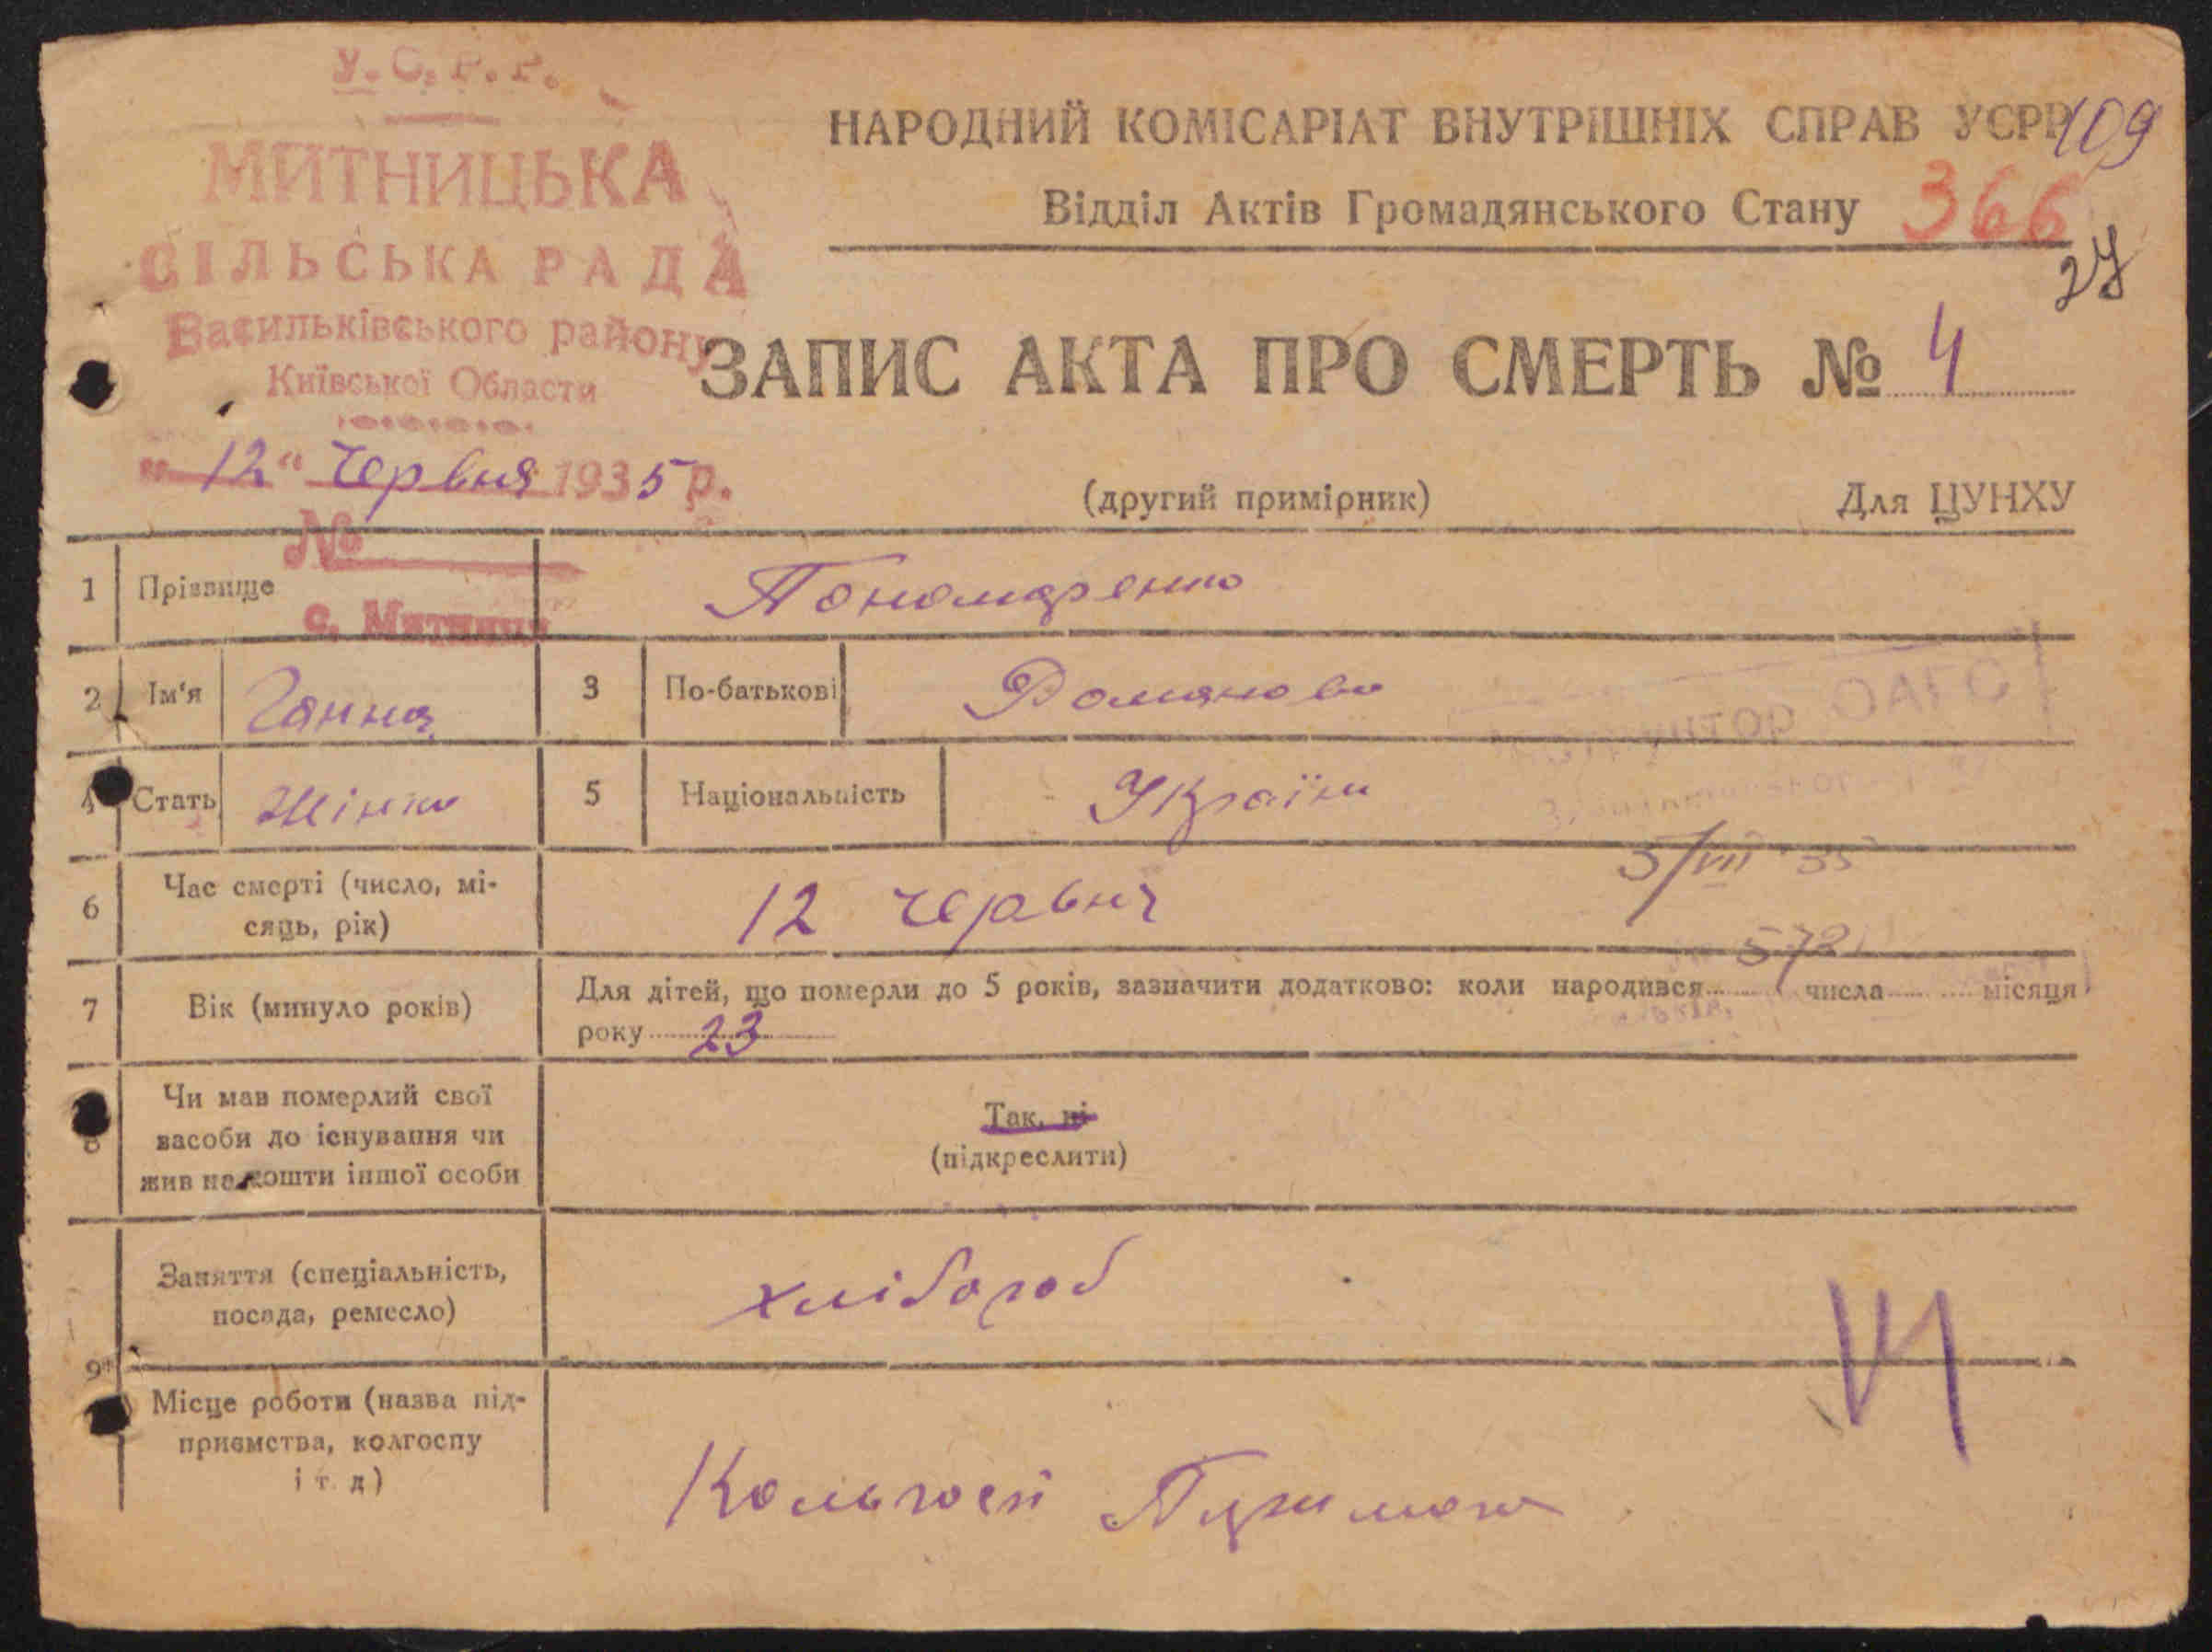 У. С. Р. Р.
МИТНИЦЬКА
СІЛЬСЬКА РАДА
Васильківського району
Київської Области
"12" червня 1935 р.
№
с. Митниця
НАРОДНИЙ КОМІСАРІАТ ВНУТРІШНІХ СПРАВ УСРР 109
Відділ Актів Громадянського Стану 366
27
ЗАПИС АКТА ПРО СМЕРТЬ № 4
(другий примірник) Для ЦУНХУ
1 Прізвище Пономаренко
2 Ім'я Ганна 3 По-батькові Романова
4 Стать жінка 5 Національність Україн
ОАГС
5/VII 35
6 Час смерті (число, мі-
сяць, рік) 12 червня
572
7 Вік (минуло років) Для дітей, що померли до 5 років, зазначити додатково: коли народився числа місяця
року 23
8 Чи мав померлий свої
засоби до існування чи
жив на кошти іншої особи
Так, ні
(підкреслити)
9 Заняття (спеціальність,
посада, ремесло) хлібороб
Місце роботи (назва під-
приємства, колгоспу
і т. д)
Кольгосп